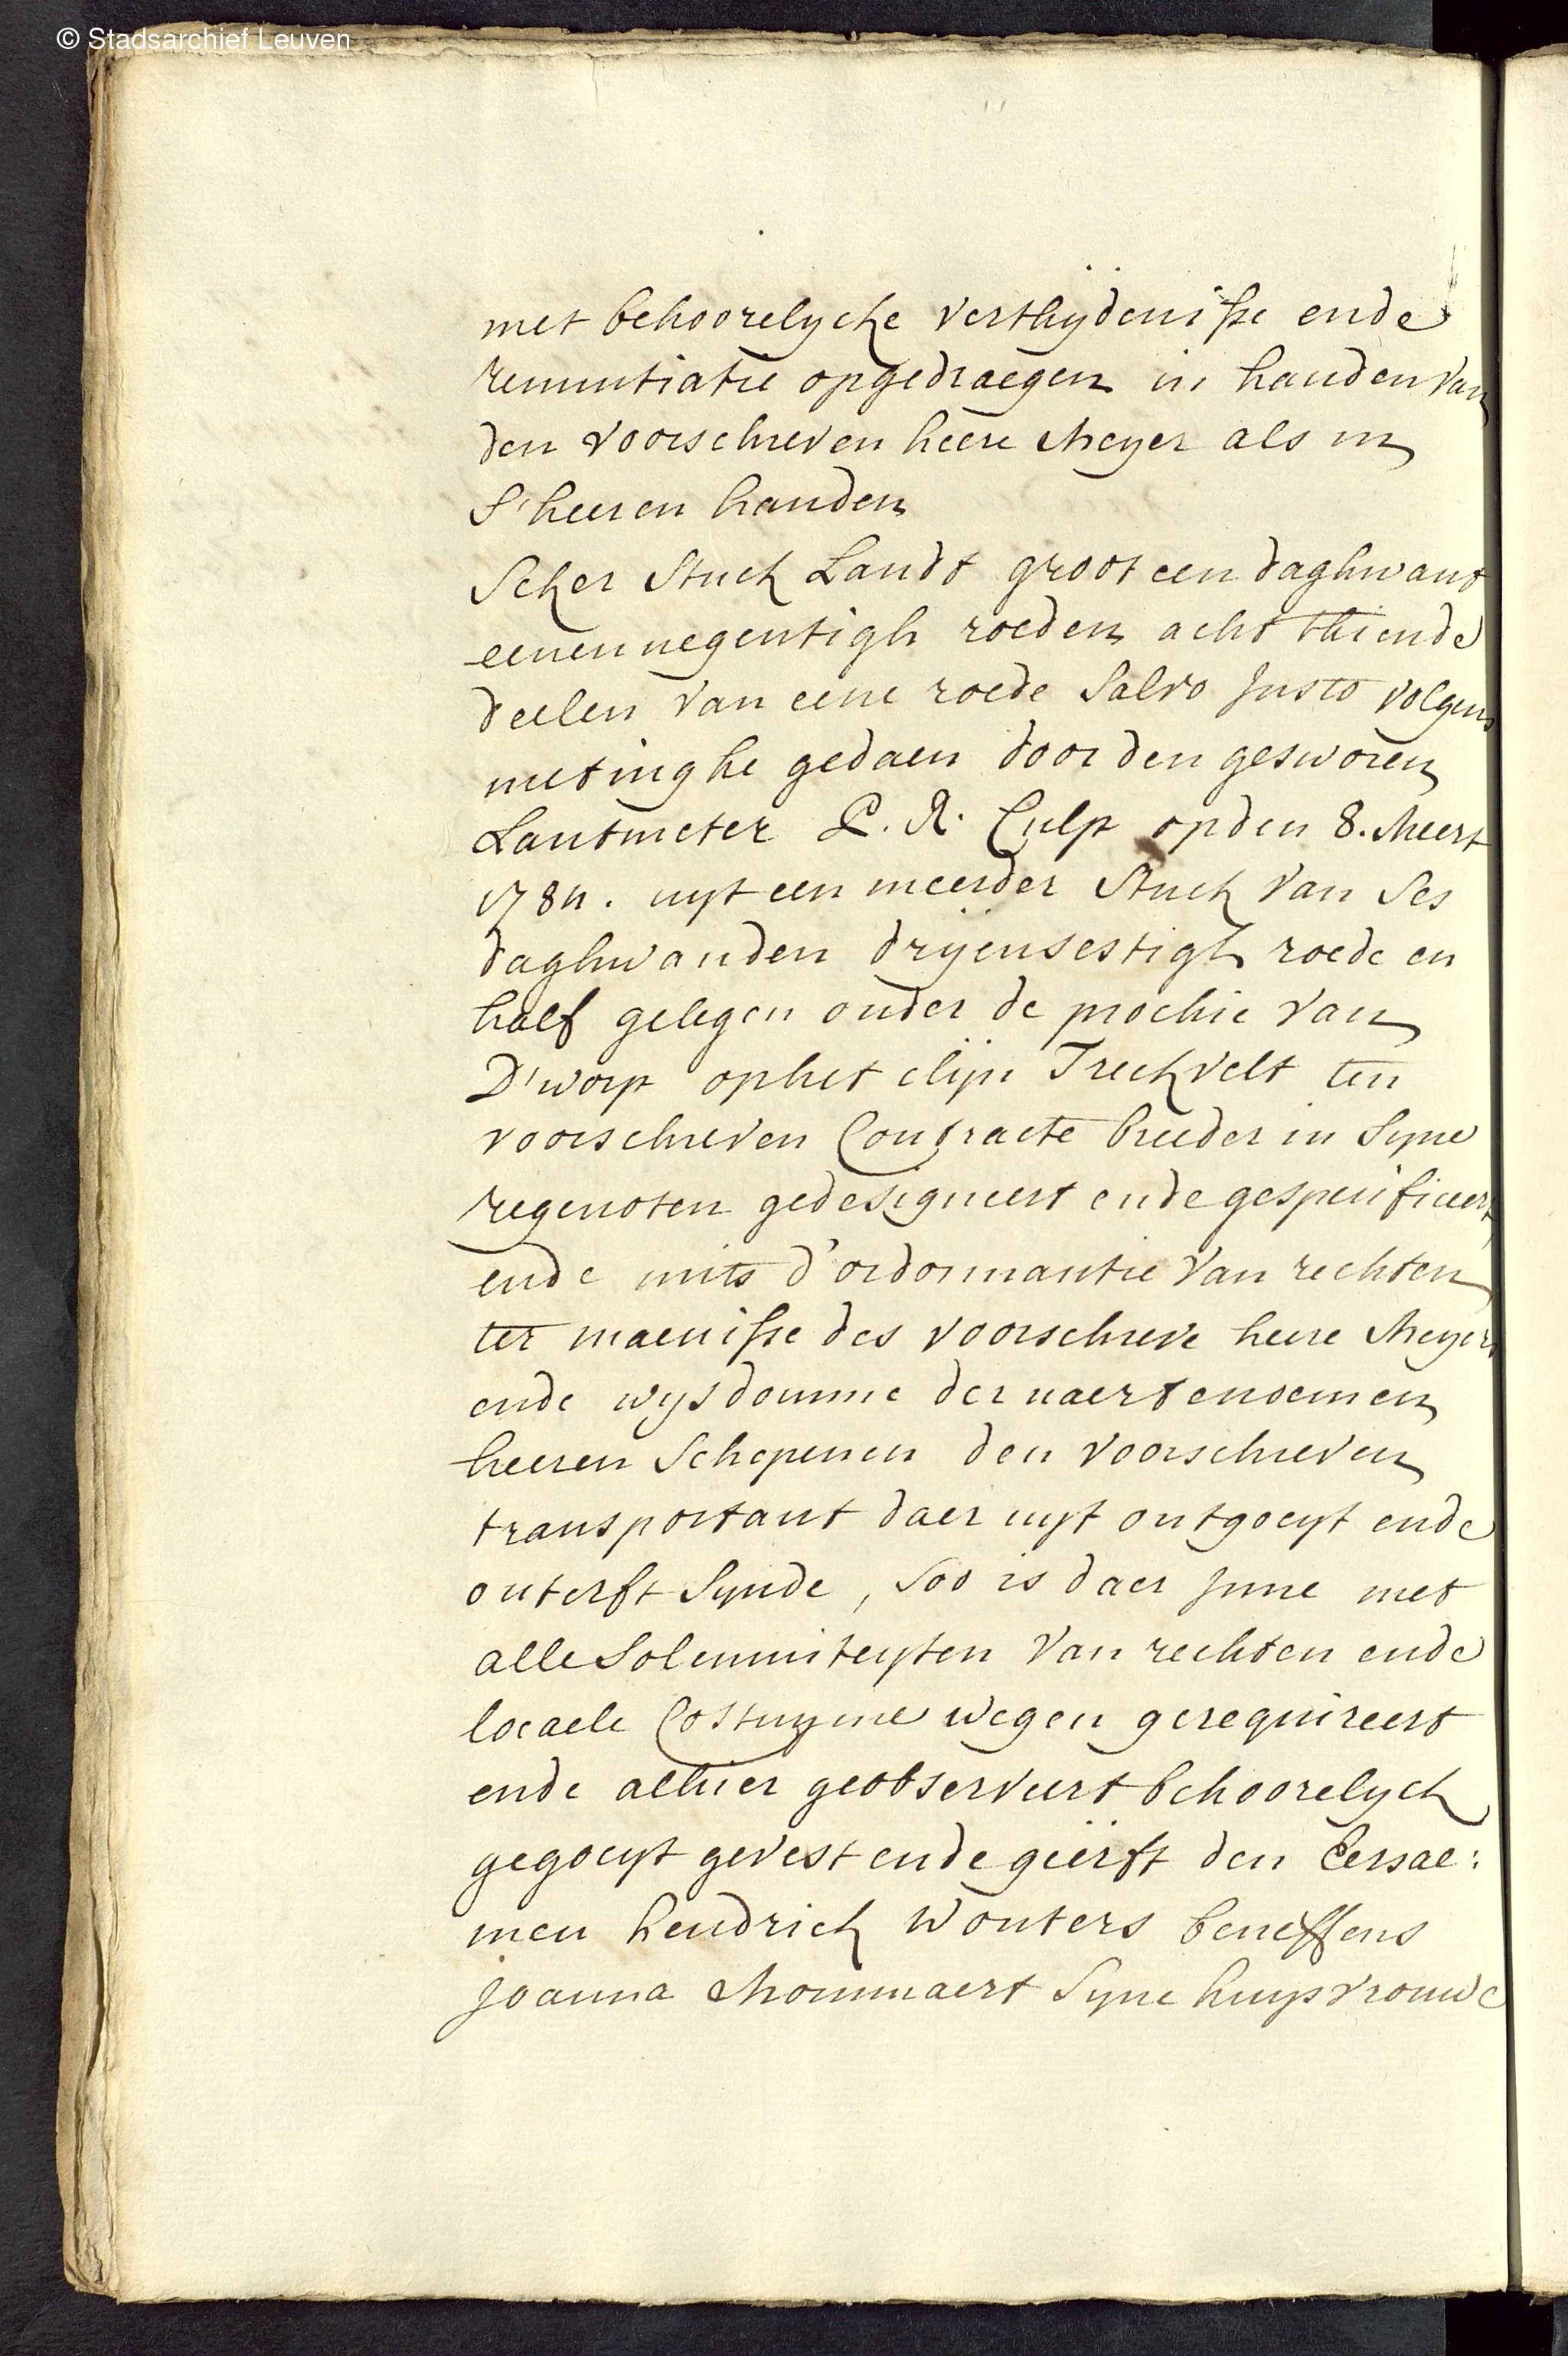 © Stadsarchief Leuven
met behoorelycke verthijdenisse ende
renuntiatie opgedraegen in handen van
den voorschreven heere Meyer als in
S'heeren handen
Seker Stuck Landt groot een daghwant
eenennegentigh roeden acht thiende
deelen van eene roede Salvo Justo volgens
metinghe gedaen door den gesworen
Lantmeter P. R. Culp op den 8. Meert
1784. uyt een meerder Stuck van Ses
daghwanden drijensestigh roede en
half gelegen onder de prochie van
D'worp op het clijn Treckvelt ten
voorschreven Contracte breeder in Syne
regenoten gedesigneert ende gespecificeert
ende mits d'ordonnantie van rechten
ter maenisse des voorschreve heere Meyers
ende wysdomme der naertenoemen
heeren Schepenen den voorschreven
transportant daer uyt ontgoeyt ende
onterft Synde, Soo is daer Inne met
alle Solemniteyten van rechten ende
locaele Costuyme wegen gerequireert
ende alhier geobserveert behoorelyck
gegoeyt gevest ende geërft den Eersae:
men hendrick Wouters beneffens
Joanna Mommaert Syne huysvrouwe